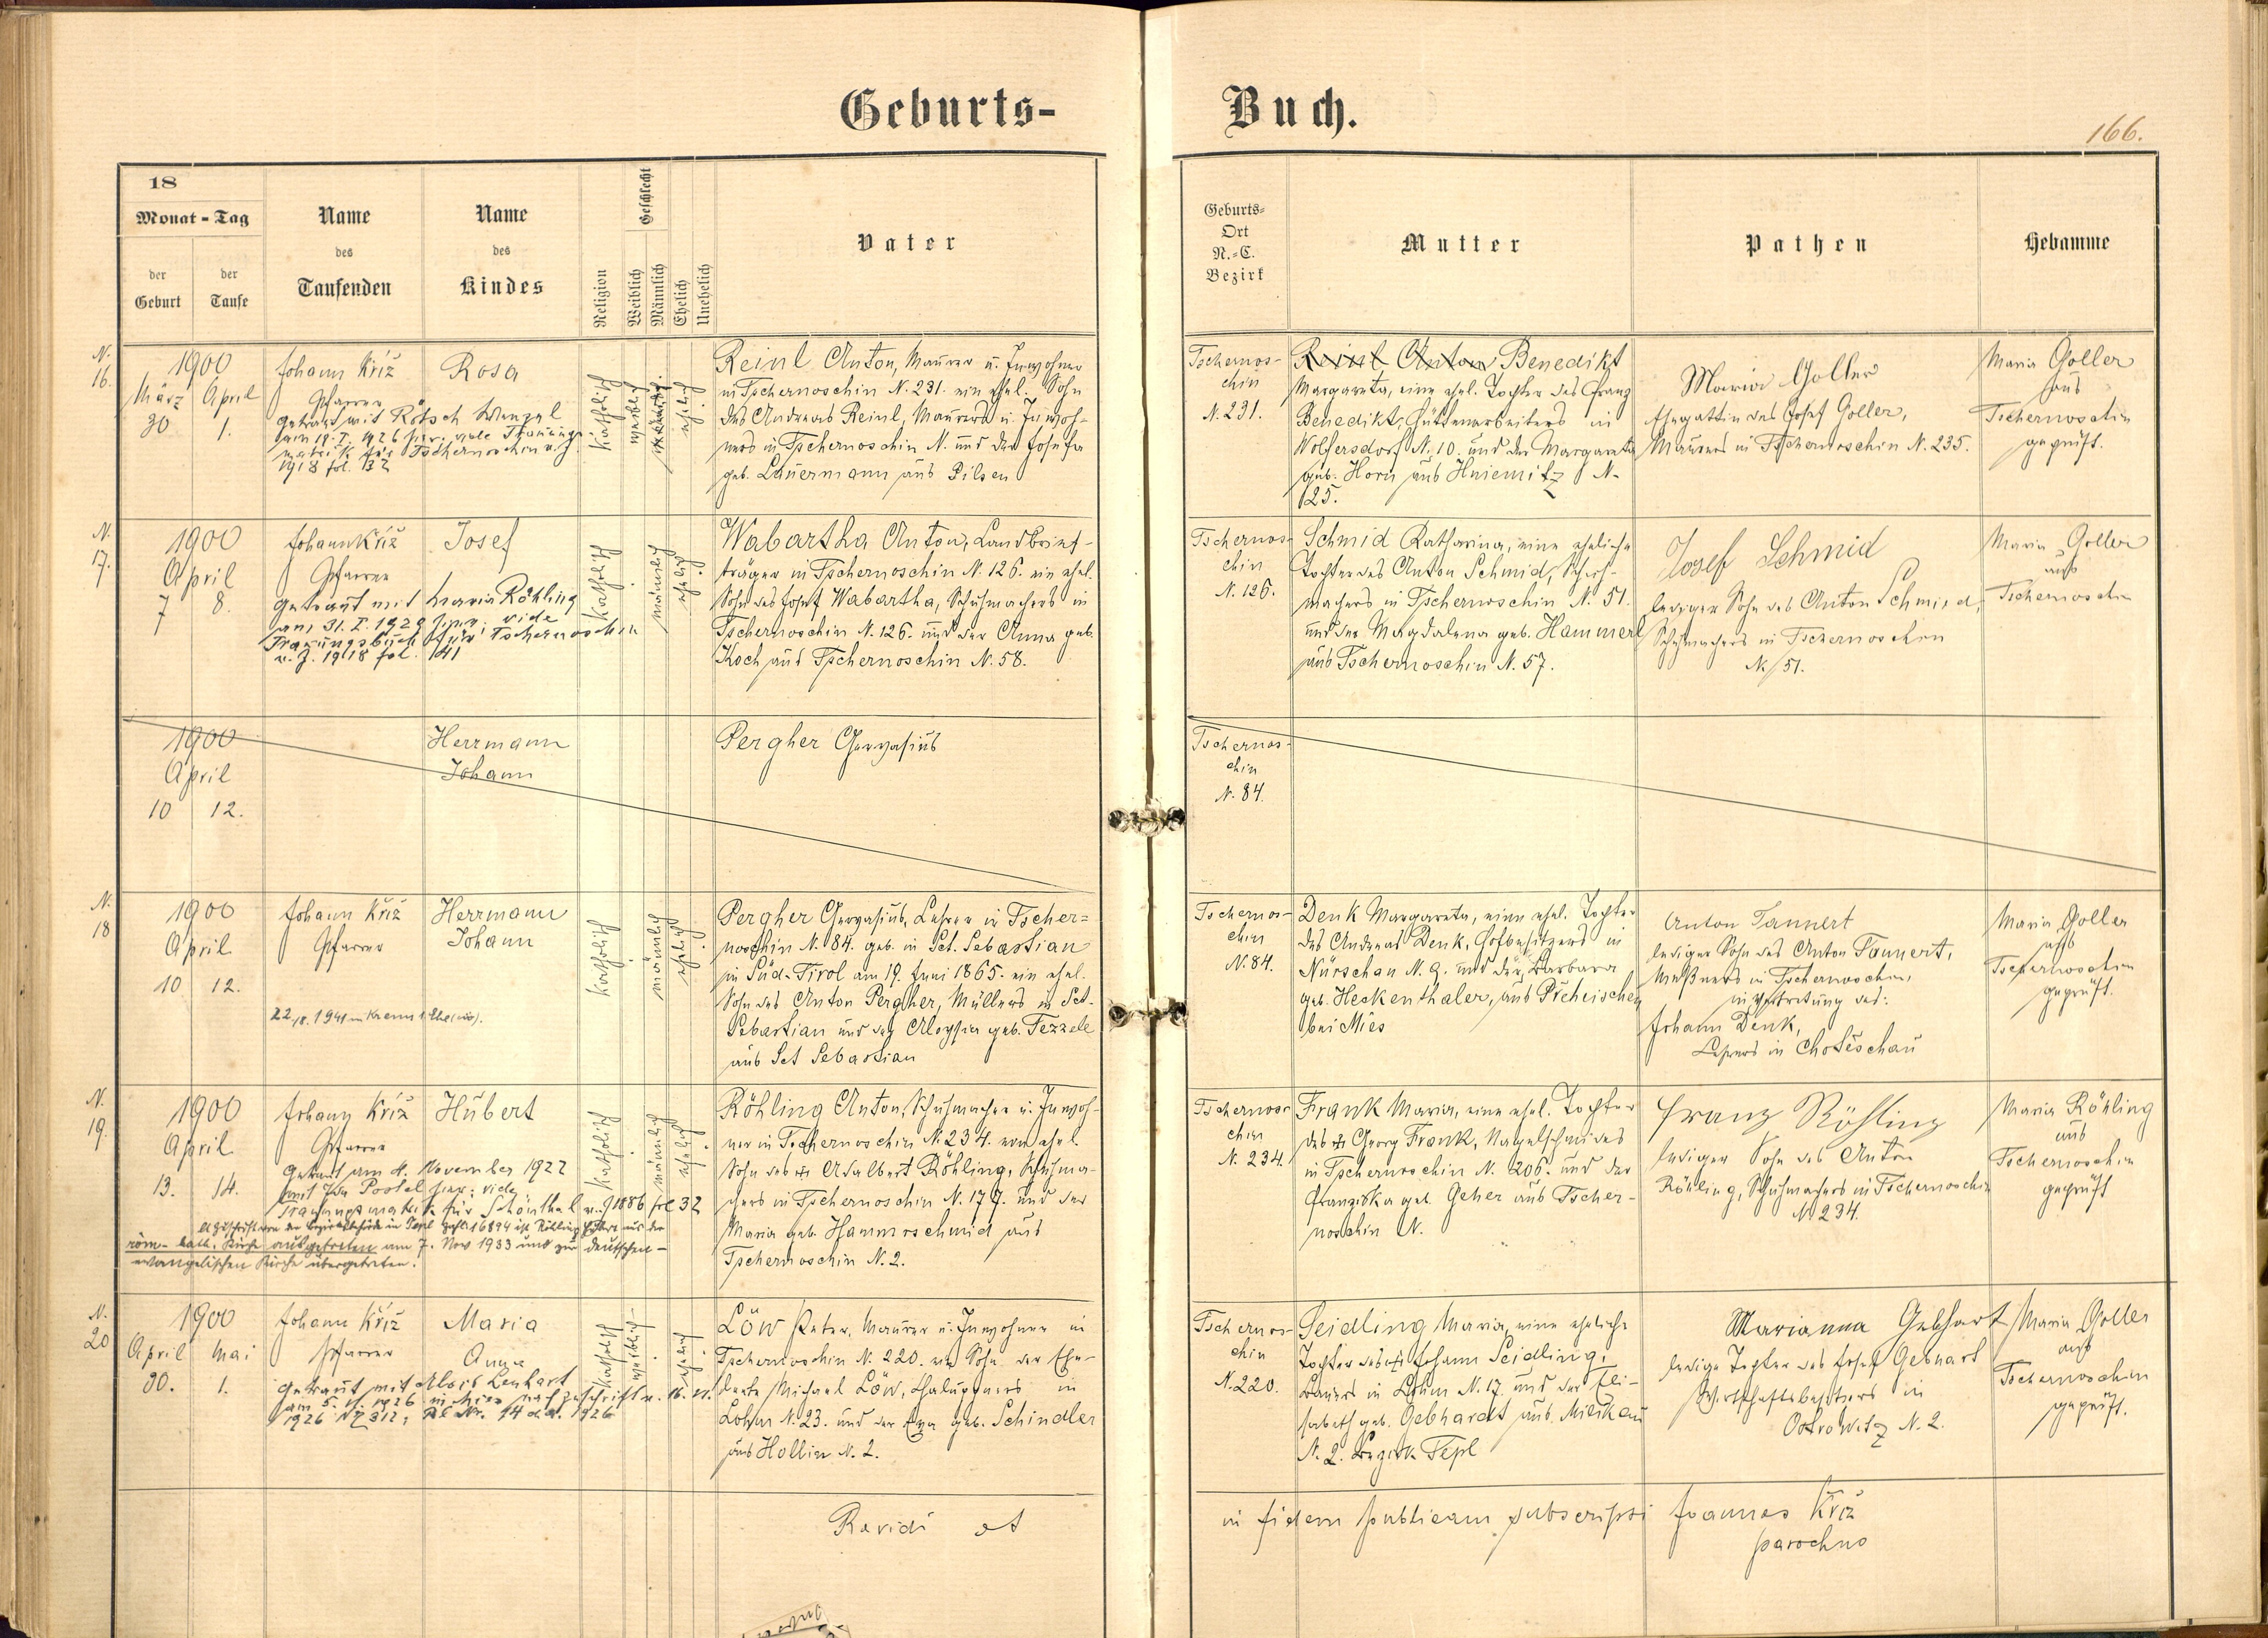 Geburts-
Buch.
166.
18
Monat - Tag
der Geburt
der Taufe
Name des Taufenden
Name des Kindes
Religion
Geschlecht
Weiblich
Männlich
Ehelich
Unehelich
Vater
Geburts-
Ort
N.-C.
Bezirk
Mutter
Pathen
Hebamme
N.
16.
1900
März April
30 1.
Johann Kříž
Pfarrer
getraut mit Rötsch Wenzel
1918 fol. 132
Rosa
katholisch
weiblich
ehelich
Reinl Anton, Maurer u. Inwohner
in Tschernoschin N. 231. ein ehel. Sohn
des Andreas Reinl, Maurers u. Inwoh-
ners in Tschernoschin N. und der Josefa
geb. Lauermann aus Pilsen
Tschernos-
chin
N. 231.
Reinl Anton Benedikt
Margareta, eine ehel. Tochter des Franz
Benedikt, Hüttenarbeiters in
Wolfersdorf N. 10. und der Margareta
geb. Horn aus Hniemitz N.
25.
Maria Goller
Ehegattin des Josef Goller,
Maurers in Tschernoschin N. 235.
Maria Goller
aus
Tschernoschin
geprüft.
N.
17.
1900
April
7 8.
Johann Kříž
Pfarrer
getraut mit Maria Röhling
am 31. I. 1929 hier; vide
Trauungsbuch für Tschernoschin
v. J. 1918 fol. 141
Josef
katholisch
männlich
ehelich
Wabartha Anton, Landbrief-
träger in Tschernoschin N. 126. ein ehel.
Sohn des Josef Wabartha, Schuhmachers in
Tschernoschin N. 126. und der Anna geb.
Koch aus Tschernoschin N. 58.
Tschernos-
chin
N. 126.
Schmid Katharina, eine eheliche
Tochter des Anton Schmid, Schuh-
machers in Tschernoschin N. 51.
und der Magdalena geb. Hammerl
aus Tschernoschin N. 57.
Josef Schmid
lediger Sohn des Anton Schmied,
Schuhmachers in Tschernoschin
N. 51.
Maria Goller
aus
Tschernoschin
1900
April
10 12.
Herrmann
Johann
Pergher Gervasius
Tschernos-
chin
N. 84.
N.
18
1900
April
10 12.
Johann Kříž
Pfarrer
22./8. 1941 in Krems 1. Ehe
Herrmann
Johann
katholisch
männlich
ehelich
Pergher Gervasius, Lehrer in Tscher=
noschin N. 84. geb. in Sct. Sebastian
in Süd-Tirol am 19. Juni 1865. ein ehel.
Sohn des Anton Pergher, Müllers in Sct.
Sebastian und der Aloysia geb. Tezzele
aus Sct Sebastian
Tschernos-
chin
N. 84.
Denk Margareta, eine ehel. Tochter
des Andreas Denk, Hofbesitzers in
Nürschan N. 9. und der Barbara
geb. Heckenthaler, aus Přcheischen
bei Mies
Anton Tannert
lediger Sohn des Anton Tannert,
Meßners in Tschernoschin,
in Vertretung des:
Johann Denk,
Lehrers in Choteschau
Maria Goller
aus
Tschernoschin
geprüft.
N.
19.
1900
April
13. 14.
Johann Kříž
Pfarrer
Getraut am 4. November 1922
mit Ida Postel hier; vide
Trauungsmatrik für Schönthal v. J 1886 fol 32
röm-kath. Kirche ausgetreten am 7. Nov 1933 und zur deutschen-
evangelischen Kirche übergetreten.
Hubert
katholisch
männlich
ehelich
Röhling Anton, Schuhmacher u. Inwoh-
ner in Tschernoschin N. 234. ein ehel.
Sohn des Adalbert Röhling, Schuhma-
chers in Tschernoschin N. 177. und der
Maria geb. Hammerschmid aus
Tschernoschin N. 2.
Tschernos-
chin
N. 234.
Frank Maria, eine ehel. Tochter
des Georg Frank, Nagelschmiedes
in Tschernoschin N. 206. und der
Franziska geb. Geher aus Tscher-
noschin N.
Franz Röhling
lediger Sohn des Anton
Röhling, Schuhmachers in Tschernoschin
N. 234.
Maria Röhling
aus
Tschernoschin
geprüft
N.
20
1900
April Mai
30. 1.
Johann Kříž
Pfarrer
Getraut mit Alois Lenhart
Maria
Anna
katholisch
weiblich
ehelich
Löw Peter, Maurer u. Inwohner in
Tschernoschin N. 220. ein Sohn der Ehe-
leute Michael Löw, Chaluppners in
Lohm N. 23. und der Eva geb. Schindler
aus Hollin N. 2.
Tschernos-
chin
N. 220.
Seidling Maria, eine eheliche
Tochter des Johann Seidling,
Bauers in Lohm N. 17. und der Eli-
sabeth geb. Gebhardt aus Milikau
N. 2. Bezirk Tepl
Marianna Gebhart
ledige Tochter des Josef Gebhart
Wirthschaftsbesitzers in
Ostrowitz N. 2.
Maria Goller
aus
Tschernoschin
geprüft.
Revidi et
in fidem publicam subscripsi Joannes Kříž
parochus